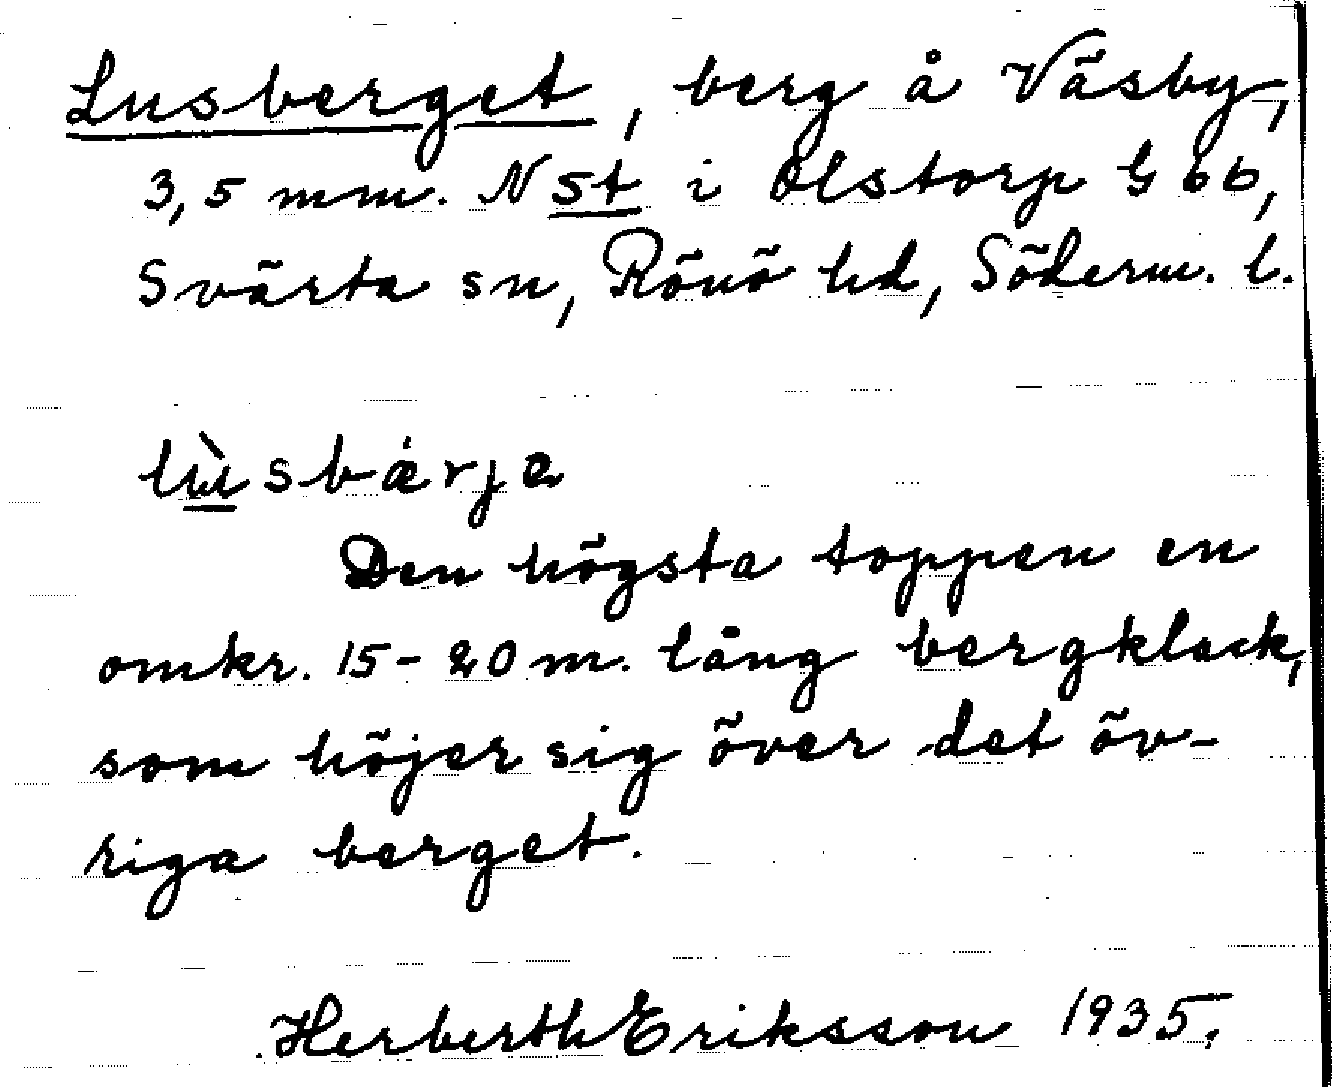 Lusberget, berg å Väsby,
3,5 mm. N st i Olstorp G 66,
Svärta sn, Rönö hd, Söderm. l.
lùsbærja
Den högsta toppen en
omkr. 15-20 m. lång bergklack,
som höjer sig över det öv-
riga berget.
Herberth Eriksson 1935.